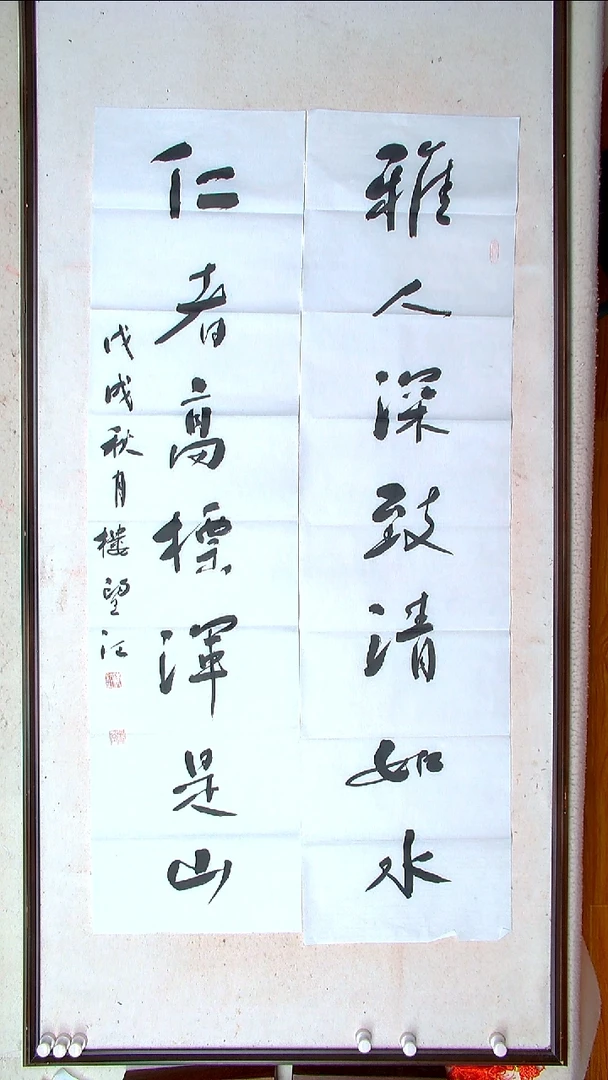 雅人深致清如水
仁者高标浑是山
戊戌秋月楼望江